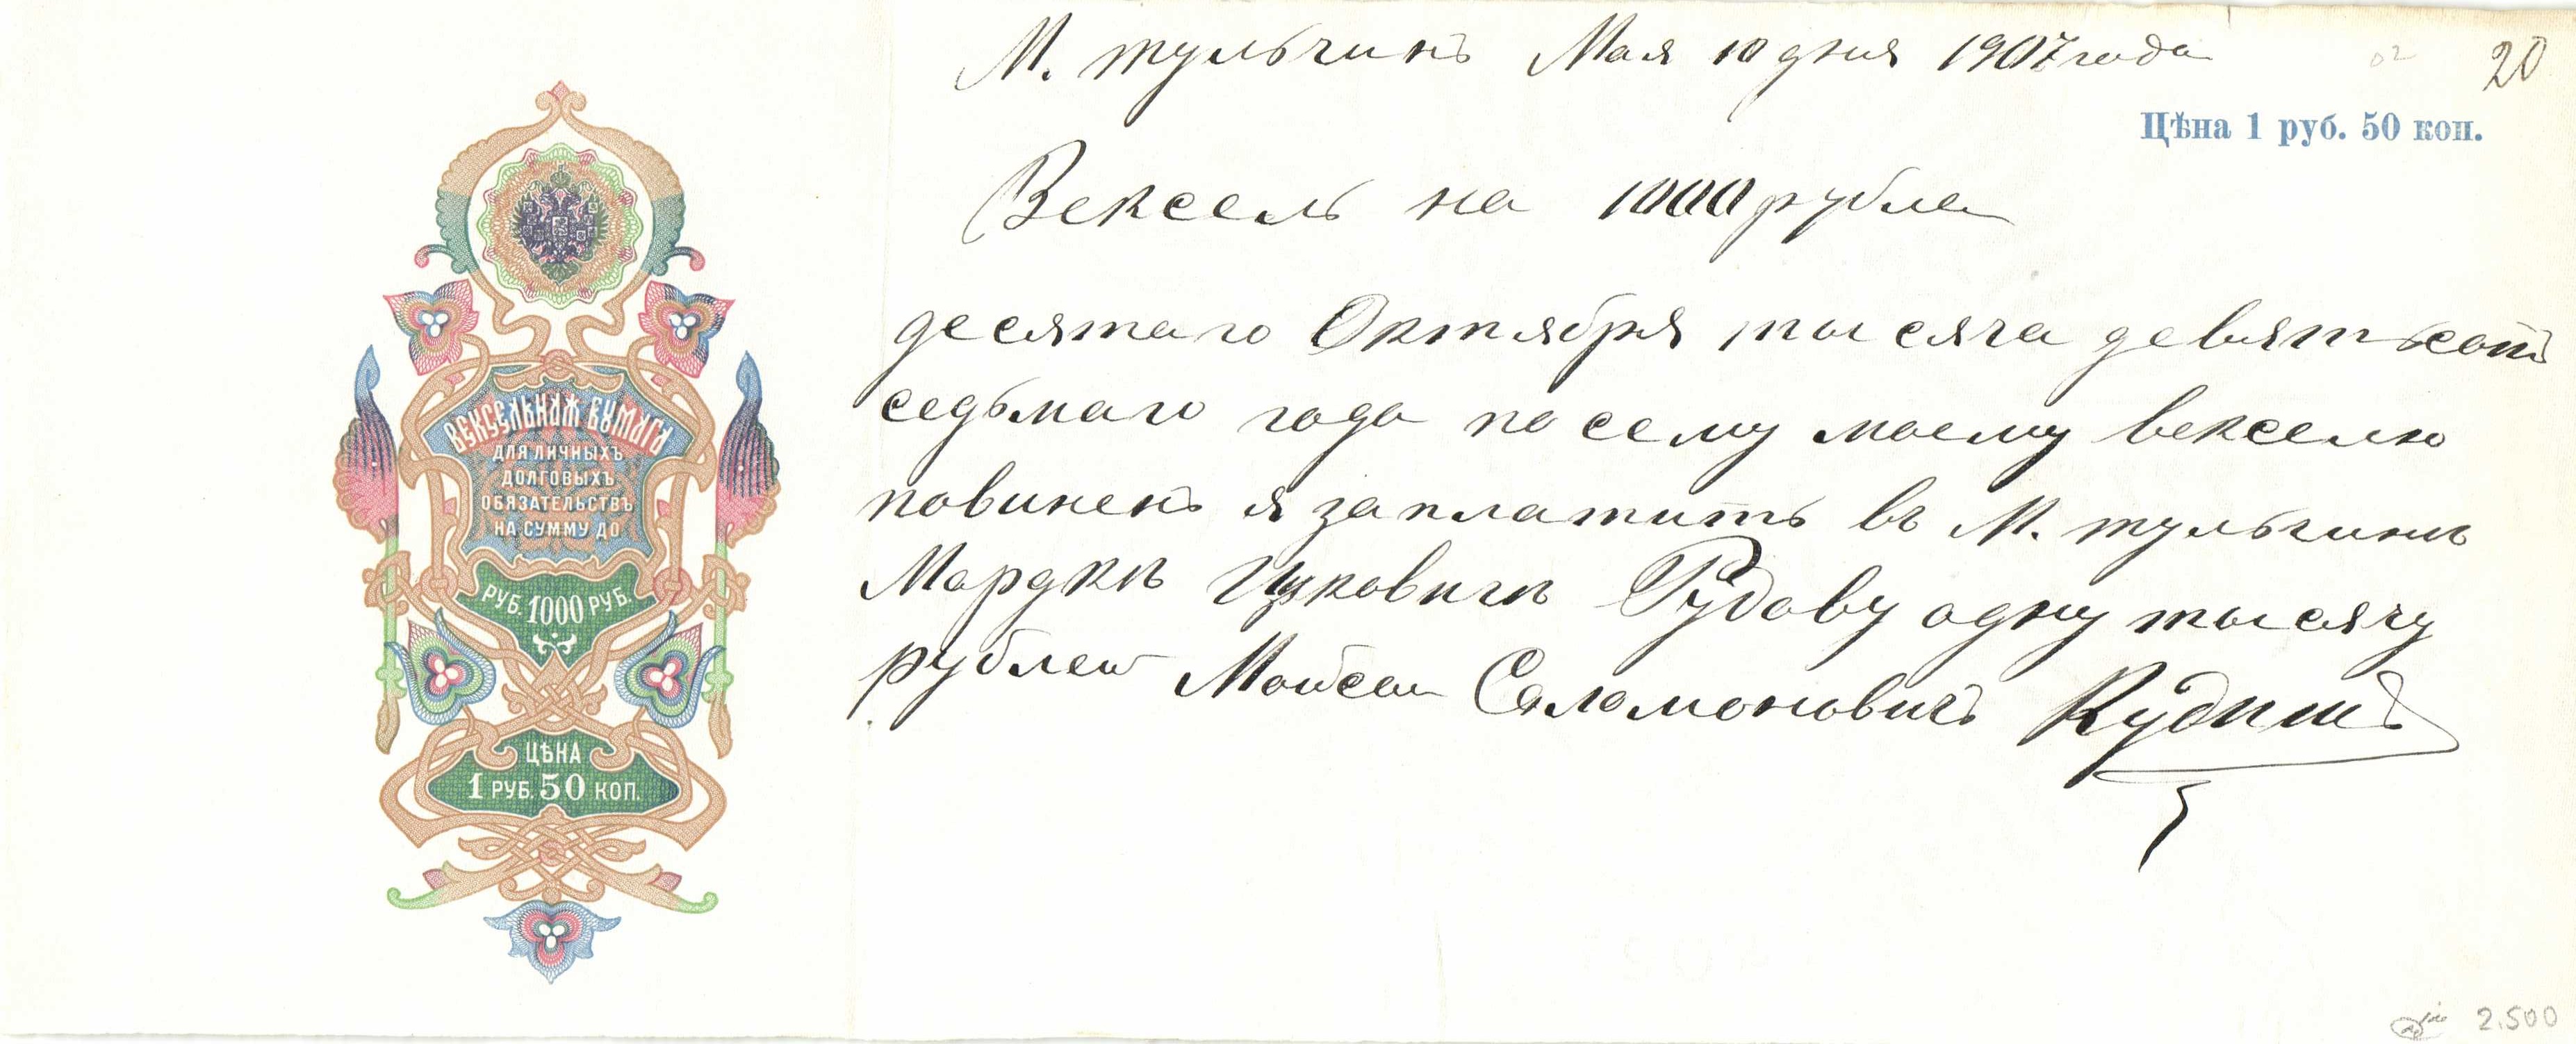 М. тульчинъ Мая 10 дня 1907 года
20
Цѣна 1 руб. 50 коп.
Вексель на 1000 рублей
десятаго Октября тысяча девятьсотъ
седьмаго года по сему моему векселю
повиненъ я заплатить въ М. тульчинѣ
Мордкѣ Ицковичѣ Рудову одну тысячу
рублей Мойсей Соломоновичъ
ВЕКСЕЛЬНАЯ БУМАГА
ДЛЯ ЛИЧНЫХЪ
ДОЛГОВЫХЪ
ОБЯЗАТЕЛЬСТВЪ
НА СУММУ ДО
РУБ. 1000 РУБ.
ЦѢНА
1 РУБ. 50 КОП.
2.500